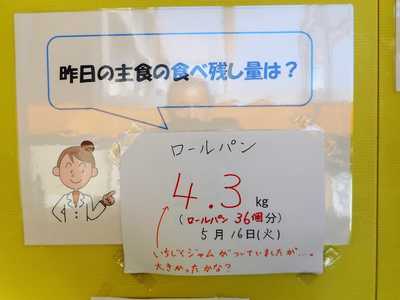 昨日の主食の食べ残し量は？
ロールパン
4.3 kg
(ロールパン 36個分)
5月16日(火)
いちごジャムがついていましたが…。
大きかったかな？